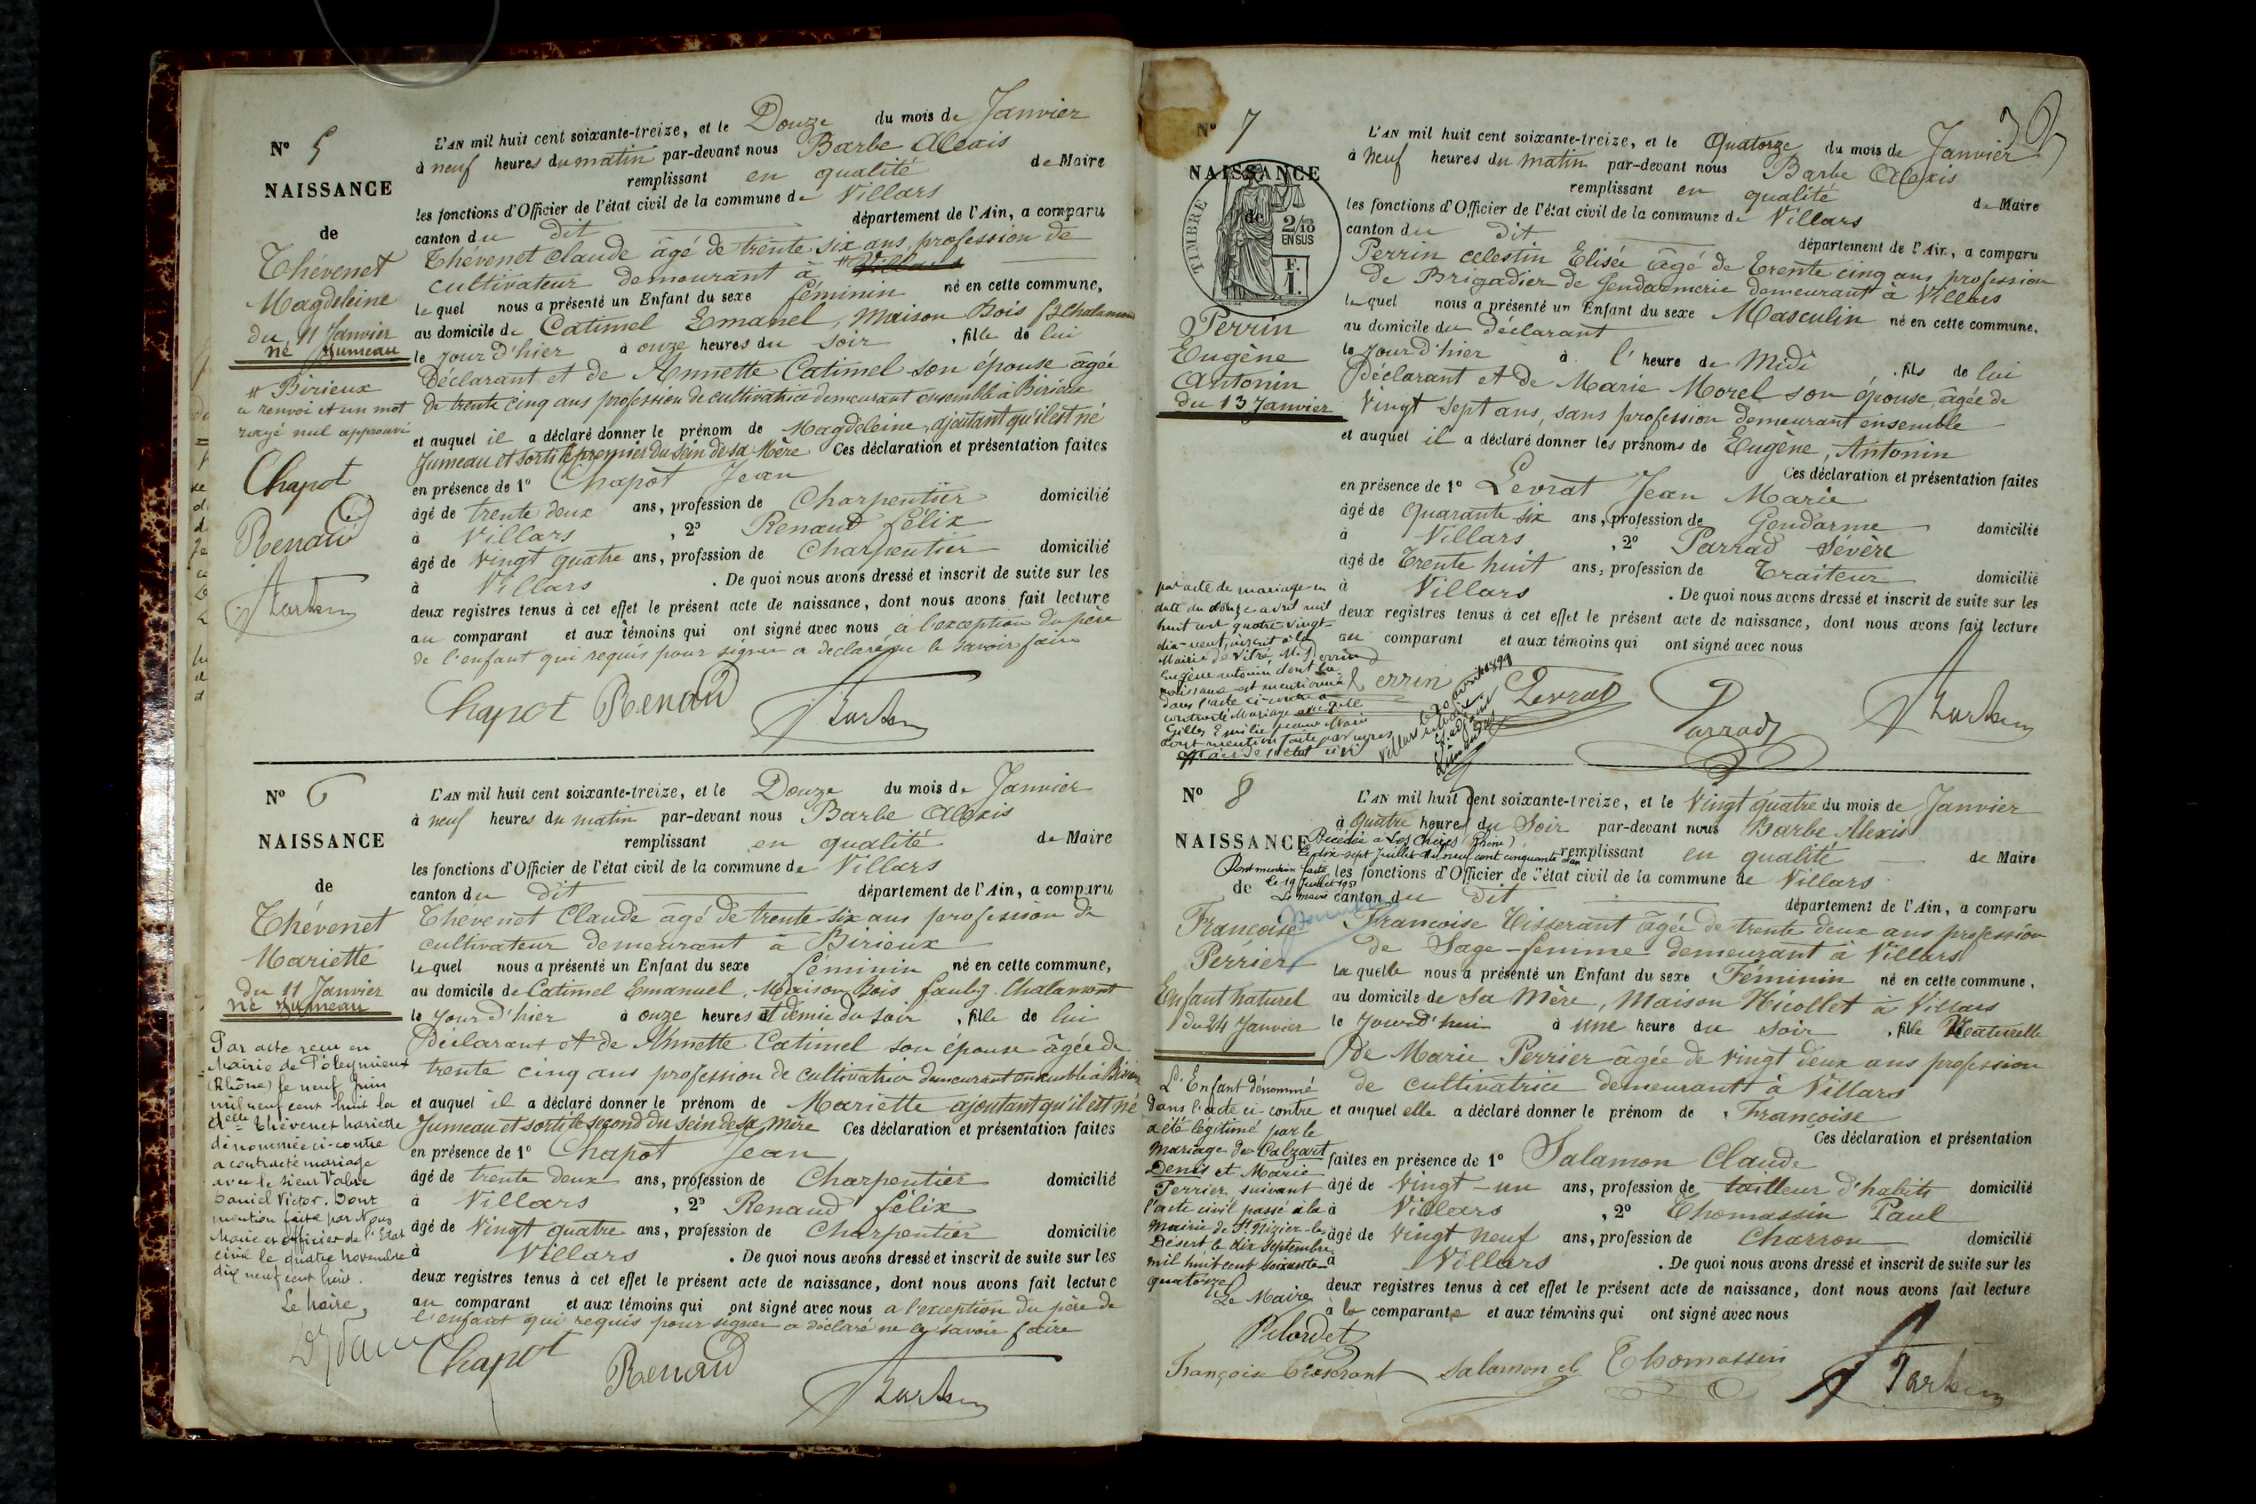 N° 5
NAISSANCE
de
Thévenet
Magdeleine
du 11 Janvier
né Jumeau
# Birieux
un renvoi et un mot
rayé nul approuvé
Chapot
Renaud
L'AN mil huit cent soixante-treize, et le Douze du mois de Janvier
à neuf heures du matin par-devant nous Barbe Alexis
remplissant en qualité de Maire
les fonctions d'Officier de l'état civil de la commune de Villars
canton du dit département de l'Ain, a comparu
Thévenet Claude âgé de trente six ans, profession de
cultivateur demeurant à # Villars
lequel nous a présenté un Enfant du sexe féminin né en cette commune,
au domicile de Catimel Emanel, Maison Bois
le jour d'hier à onze heures du soir, fille de lui
Déclarant et de Annette Catimel son épouse âgée
de trente cinq ans profession de cultivatrice demeurant ensemble à Birieux
et auquel il a déclaré donner le prénom de Magdeleine, ajoutant qu'il est né
Jumeau et sorti le premier du sein de sa Mère Ces déclaration et présentation faites
en présence de 1° Chapot Jean
âgé de trente deux ans, profession de Charpentier domicilié
à Villars, 2° Renaud félix
âgé de vingt quatre ans, profession de Charpentier domicilié
à Villars. De quoi nous avons dressé et inscrit de suite sur les
deux registres tenus à cet effet le présent acte de naissance, dont nous avons fait lecture
au comparant et aux témoins qui ont signé avec nous à l'exception du père
de l'enfant qui requis pour signer a déclaré ne le savoir faire
Chapot Renaud
N° 6
NAISSANCE
de
Thévenet
Mariette
du 11 Janvier
né Jumeau
Par acte reçu en
Mairie de Poleymieux
(Rhône) le neuf Juin
mil neuf cent huit la
delle Thévenet Mariette
dénommée ci-contre
a contracté mariage
avec le sieur Value
Daniel Victor. Dont
mention faite par Nous
Maire et officier de l'Etat
civil le quatre novembre
dix neuf cent huit.
Le Maire,
L'AN mil huit cent soixante-treize, et le Douze du mois de Janvier
à neuf heures du matin par-devant nous Barbe Alexis
remplissant en qualité de Maire
les fonctions d'Officier de l'état civil de la commune de Villars
canton du dit département de l'Ain, a comparu
Thévenet Claude âgé de trente-six ans profession de
cultivateur demeurant à Birieux
lequel nous a présenté un Enfant du sexe féminin né en cette commune,
au domicile de Catimel Emanuel, Maison Bois faubg. Chalamont
le jour d'hier à onze heures et demie du soir, fille de lui
Déclarant et de Annette Catimel son épouse âgée de
trente cinq ans profession de cultivatrice demeurant ensemble à Birieux
et auquel il a déclaré donner le prénom de Mariette ajoutant qu'il est né
Jumeau et sorti le second du sein de sa mère Ces déclaration et présentation faites
en présence de 1° Chapot Jean
âgé de trente deux ans, profession de Charpentier domicilié
à Villars, 2° Renaud félix
âgé de vingt quatre ans, profession de Charpentier domicilié
à Villars. De quoi nous avons dressé et inscrit de suite sur les
deux registres tenus à cet effet le présent acte de naissance, dont nous avons fait lecture
au comparant et aux témoins qui ont signé avec nous à l'exception du père de
l'enfant qui requis pour signer a déclaré ne le savoir faire
Chapot Renaud
N° 7
NAISSANCE
de
TIMBRE
2/10
EN SUS
F.
1.
Perrin
Eugène
Antonin
du 13 Janvier
par acte de mariage en
date du douze avril mil
huit cent quatre vingt
dix-neuf, inscrit à la
Mairie de Vitré, Mr Perrin
Eugène antonin dont la
naissance est mentionnée
dans l'acte ci-contre a
contracté Mariage avec
Gilles Emilie Jeanne Marie
dont mention faite par nous
officier de l'état civil
L'AN mil huit cent soixante-treize, et le Quatorze du mois de Janvier
à neuf heures du matin par-devant nous Barbe Alexis
remplissant en qualité de Maire
les fonctions d'Officier de l'état civil de la commune de Villars
canton du dit département de l'Ain, a comparu
Perrin celestin Elisée âgé de Trente cinq ans profession
de Brigadier de Gendarmerie demeurant à Villars
lequel nous a présenté un Enfant du sexe Masculin né en cette commune,
au domicile du déclarant
le jour d'hier à l'heure de Midi, fils de lui
Déclarant et de Marie Morel son épouse, âgée de
vingt sept ans, sans profession demeurant ensemble
et auquel il a déclaré donner les prénoms de Eugène, Antonin
Ces déclaration et présentation faites
en présence de 1° Levrat Jean Marie
âgé de Quarante six ans, profession de Gendarme domicilié
à Villars, 2° Parrad Sévère
âgé de Trente huit ans, profession de Traiteur domicilié
à Villars. De quoi nous avons dressé et inscrit de suite sur les
deux registres tenus à cet effet le présent acte de naissance, dont nous avons fait lecture
au comparant et aux témoins qui ont signé avec nous
Perrin Levrat Parrad
N° 8
NAISSANCE
de
Françoise
Perrier
Enfant naturel
du 24 Janvier
Décédée à Les Chères (Rhône)
Le dix-sept juillet mil neuf cent cinquante un
Dont mention faite
Le 19 Juillet 1951
Le maire
L'Enfant dénommé
dans l'acte ci-contre
a été légitimé par le
mariage de Calzart
Denis et Marie
Perrier, suivant
l'acte civil passé à la
mairie de St Nizier-le-
Désert, le dix septembre
mil huit cent soixante
quatorze
Le Maire
Pelordet
L'AN mil huit cent soixante-treize, et le vingt quatre du mois de Janvier
à Quatre heures du Soir par-devant nous Barbe Alexis
remplissant en qualité de Maire
les fonctions d'Officier de l'état civil de la commune de Villars
canton du dit département de l'Ain, a comparu
Françoise Tisserant âgée de trente deux ans profession
de Sage-femme demeurant à Villars
laquelle nous a présenté un Enfant du sexe Féminin né en cette commune,
au domicile de Sa Mère, Maison Nicollet à Villars
le jourd'hui à une heure du soir, fille Naturelle
de Marie Perrier âgée de vingt deux ans profession
de cultivatrice demeurant à Villars
et auquel elle a déclaré donner le prénom de Françoise
Ces déclaration et présentation
faites en présence de 1° Salamon Claude
âgé de vingt-un ans, profession de tailleur d'habits domicilié
à Villars, 2° Thomassin Paul
âgé de vingt neuf ans, profession de Charron domicilié
à Villars. De quoi nous avons dressé et inscrit de suite sur les
deux registres tenus à cet effet le présent acte de naissance, dont nous avons fait lecture
à la comparante et aux témoins qui ont signé avec nous
Françoise Tisserant Salamon cl Thomassin